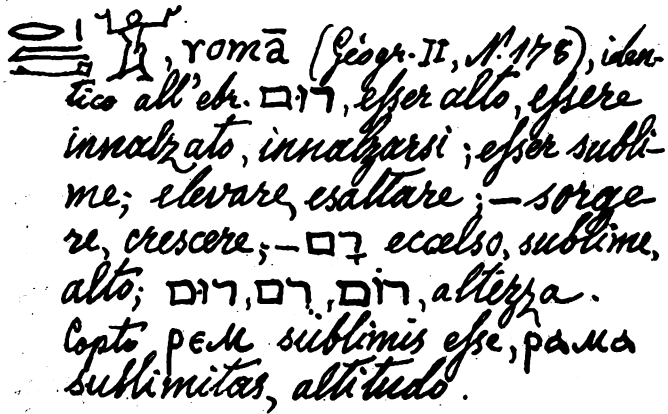 , romā (Géogr. II, N. 178), iden-
tico all'ebr. רום, esser alto, essere
innalzato, innalzarsi; esser subli-
me; elevare, esaltare; — sorge-
re, crescere; — רָם eccelso, sublime,
alto; רוֹם, רֻם, רום, altezza.
Copto ⲣⲉⲙ sublimis esse, ⲣⲁⲙⲁ
sublimitas, altitudo.